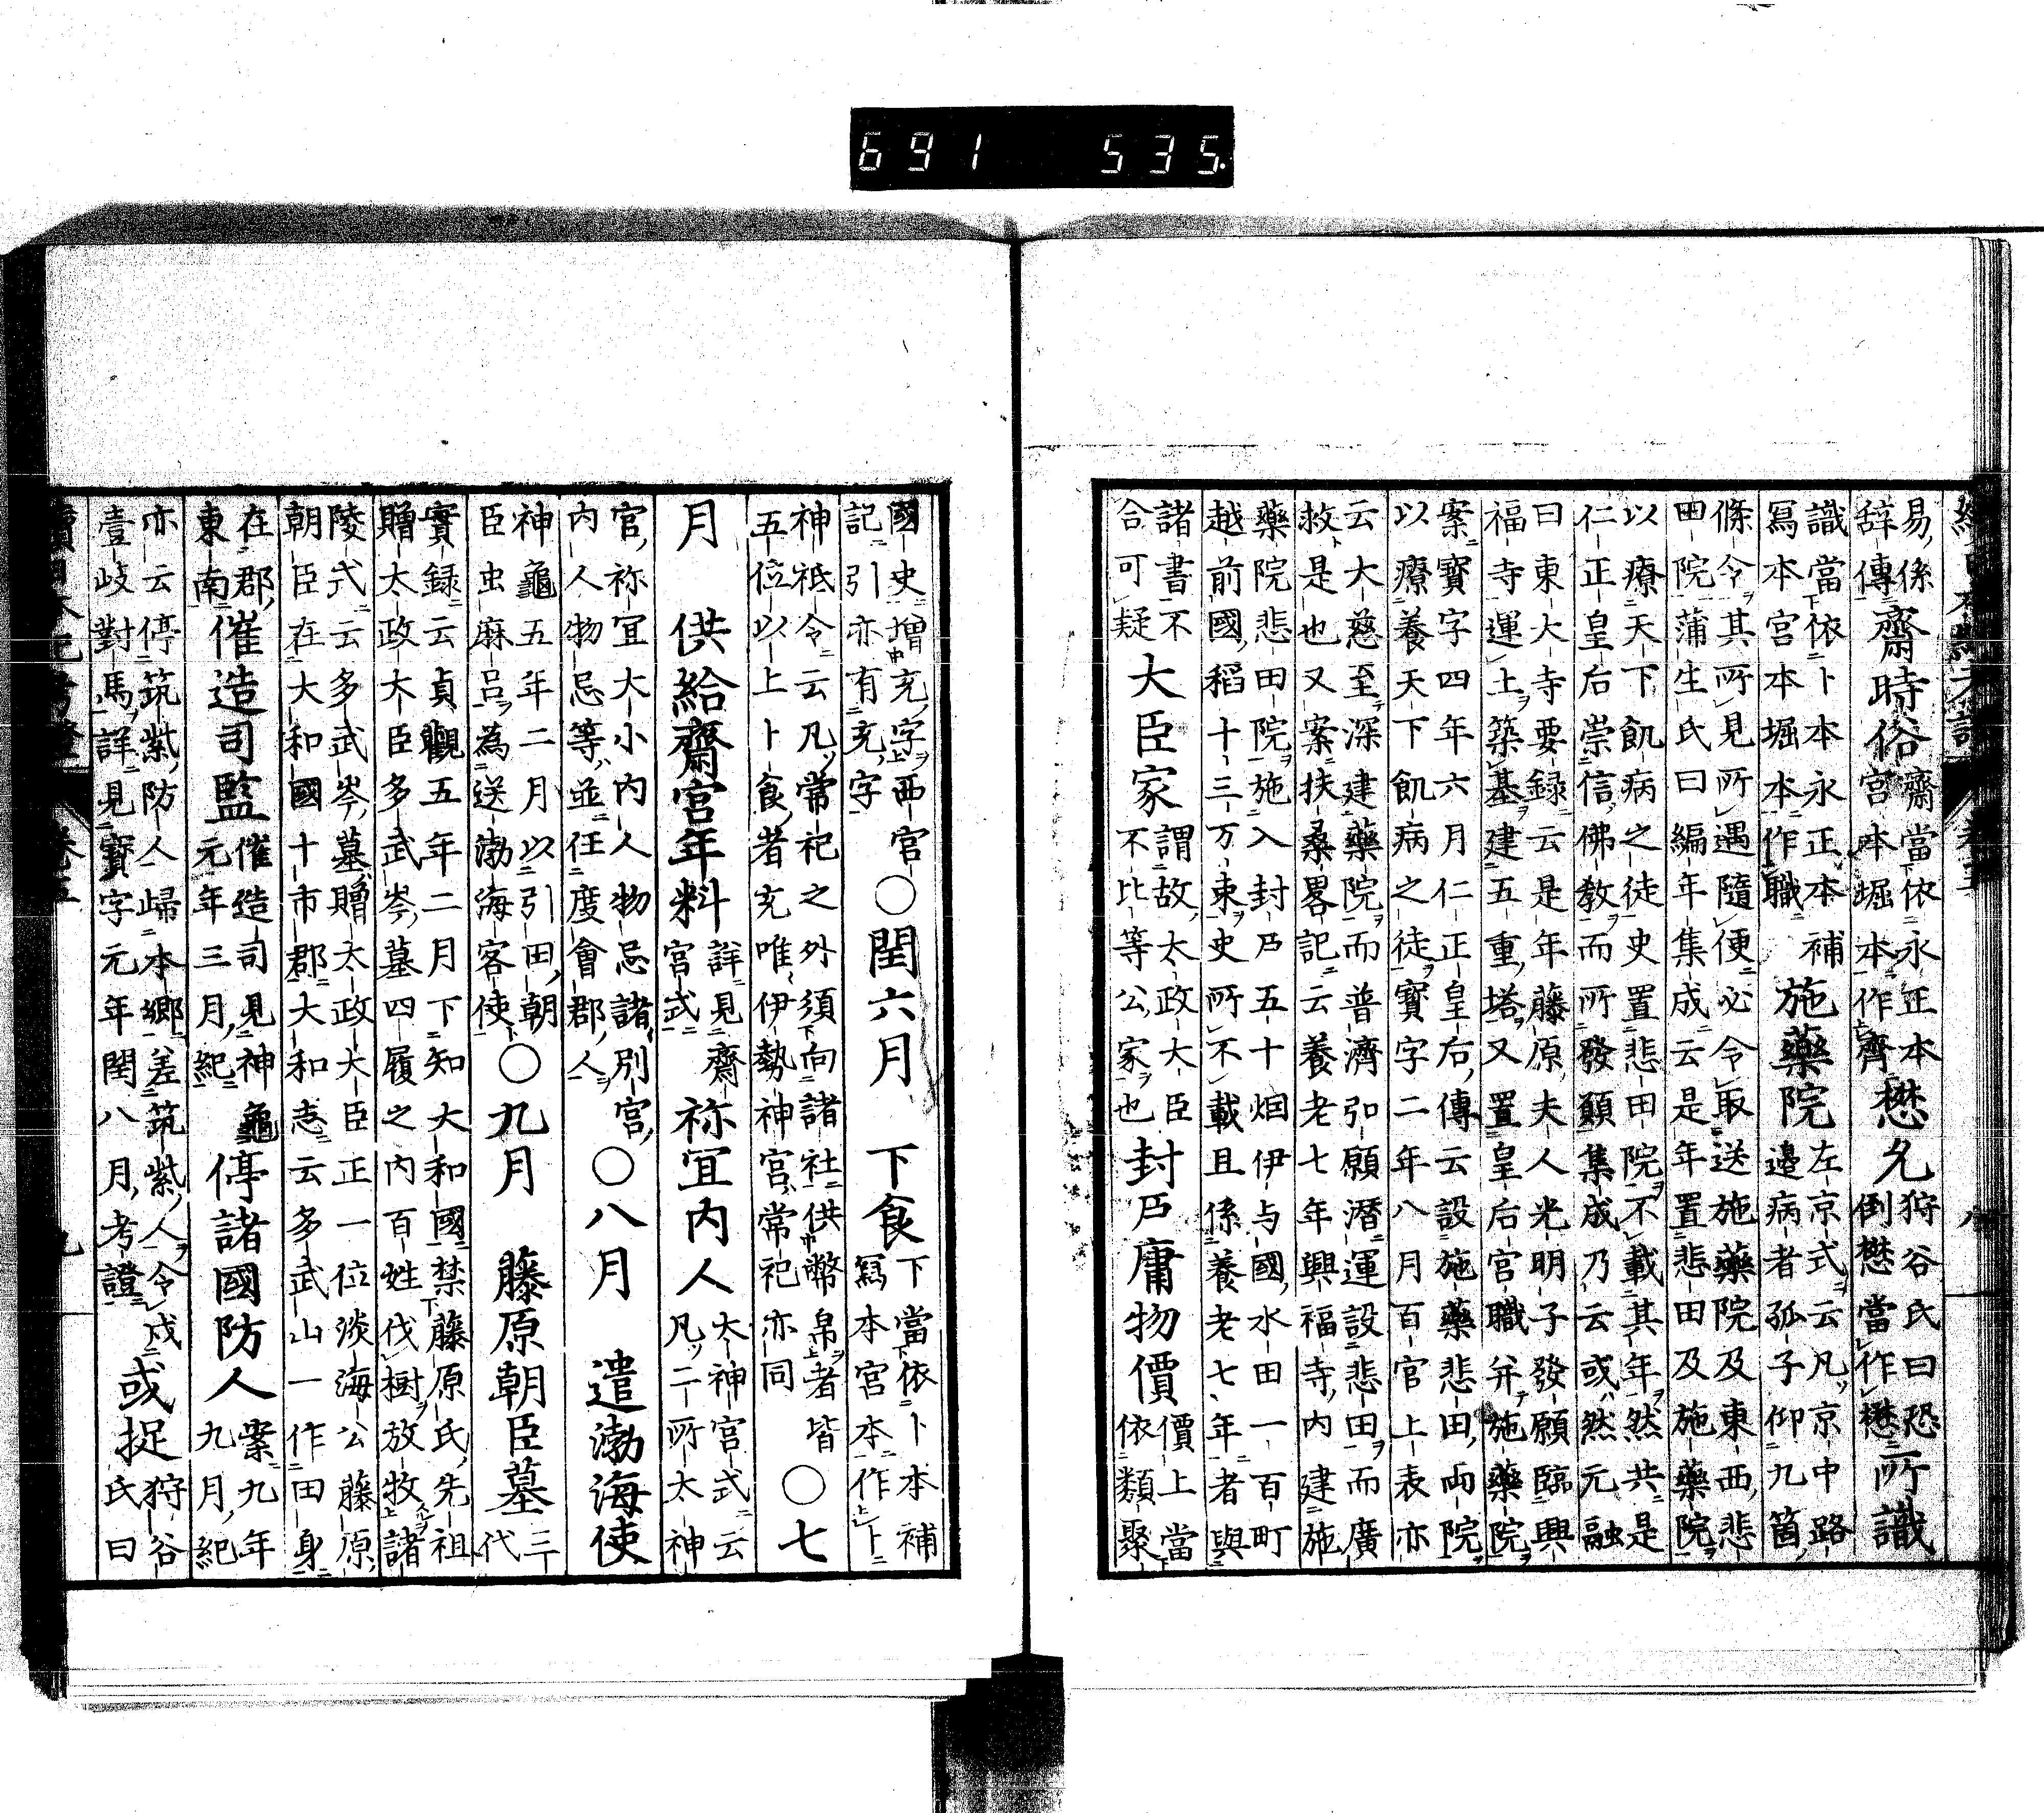 691 535.
易係
辭傳
齋時俗
齋當依永正本
宮本堀本作齊
懋允
狩谷氏曰恐
倒懋當作懋
所識
識當依卜本永正本補
寫本宮本堀本作職
施藥院
左京式云凡京中路
邊病者孤子仰九箇
條令其所見所遇隨便必令取送施藥院及東西悲
田院蒲生氏曰編年集成云是年置悲田及施藥院
以療天下飢病之徒史置悲田院不載其年然共是
仁正皇后崇信佛教而所發願集成乃云或然元融
曰東大寺要録云是年藤原夫人光明子發願臨興
福寺運上築基建五重塔又置皇后宮職并施藥院
案寶字四年六月仁正皇后傳云設施藥悲田両院
以療養天下飢病之徒寶字二年八月百官上表亦
云大慈至深建藥院而普濟弘願潛運設悲田而廣
救是也又案扶桑畧記云養老七年興福寺内建施
藥院悲田院施入封戸五十烟伊与國水田一百町
越前國稻十三万束史所不載且係養老七年者與
諸書不
合可疑
大臣家
謂故太政大臣
不比等公家也
封戸庸物價
價上當
依類聚
國史増充字西宮
記引亦有充字
○閏六月 下食
下當依卜本補
寫本宮本作卜
神祇令云凡常祀之外須向諸社供幣帛者皆
五位以上卜食者充唯伊勢神宮常祀亦同
○七
月 供給齋宮年料
詳見齋
宮式
祢冝内人
太神宮式云
凡二所太神
宮祢冝大小内人物忌諸別宮
内人物忌等並任度會郡人
○八月 遣渤海使
神龜五年二月以引田朝
臣虫麻呂為送渤海客使
○九月 藤原朝臣墓
三
代
實録云貞觀五年二月下知大和國禁藤原氏先祖
贈太政大臣多武岑墓四履之内百姓伐樹放牧諸
陵式云多武岑墓贈太政大臣正一位淡海公藤原
朝臣在大和國十市郡大和志云多武山一作田身
在郡
東南
催造司監
催造司見神龜
元年三月紀
停諸國防人
案九年
九月紀
亦云停筑紫防人歸本郷差筑紫人令戍
壹岐對馬詳見寶字元年閏八月考證
或捉
狩谷
氏曰